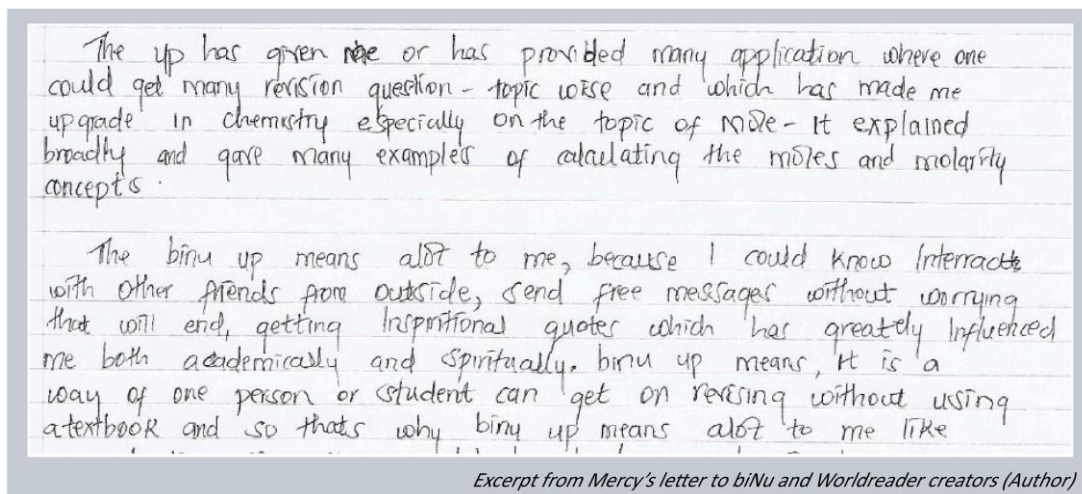 The up has given me or has provided many application where one
could get many revision question - topic wise and which has made me
upgrade in chemistry especially on the topic of mole - it explained
broadly and gave many examples of calculating the moles and molarity
concepts.
The binu up means alot to me, because I could know Interract
with other friends from outside, send free messages without worrying
that will end, getting Inspiritional quotes which has greately Influenced
me both academically and spiritually. binu up means, it is a
way of one person or student can get on revising without using
a textbook and so thats why binu up means alot to me like
Excerpt from Mercy's letter to biNu and Worldreader creators (Author)